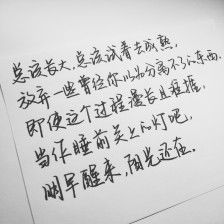 总该长大,总该试着去成熟,
放弃一些曾经你以为分离不了的东西.
即使这个过程漫长且拒捱,
当作睡前关上的灯吧,
明早醒来,阳光还在.